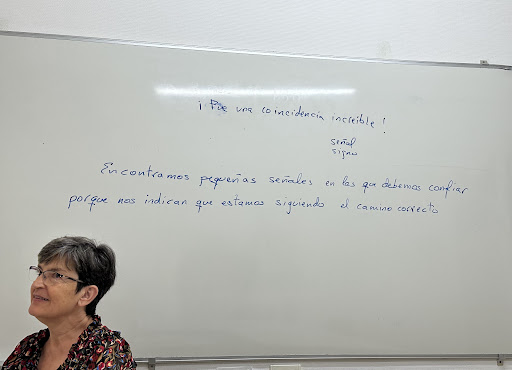 ¡ Fue una coincidencia increíble !
señal
signo
Encontramos pequeñas señales en las que debemos confiar
porque nos indican que estamos siguiendo el camino correcto